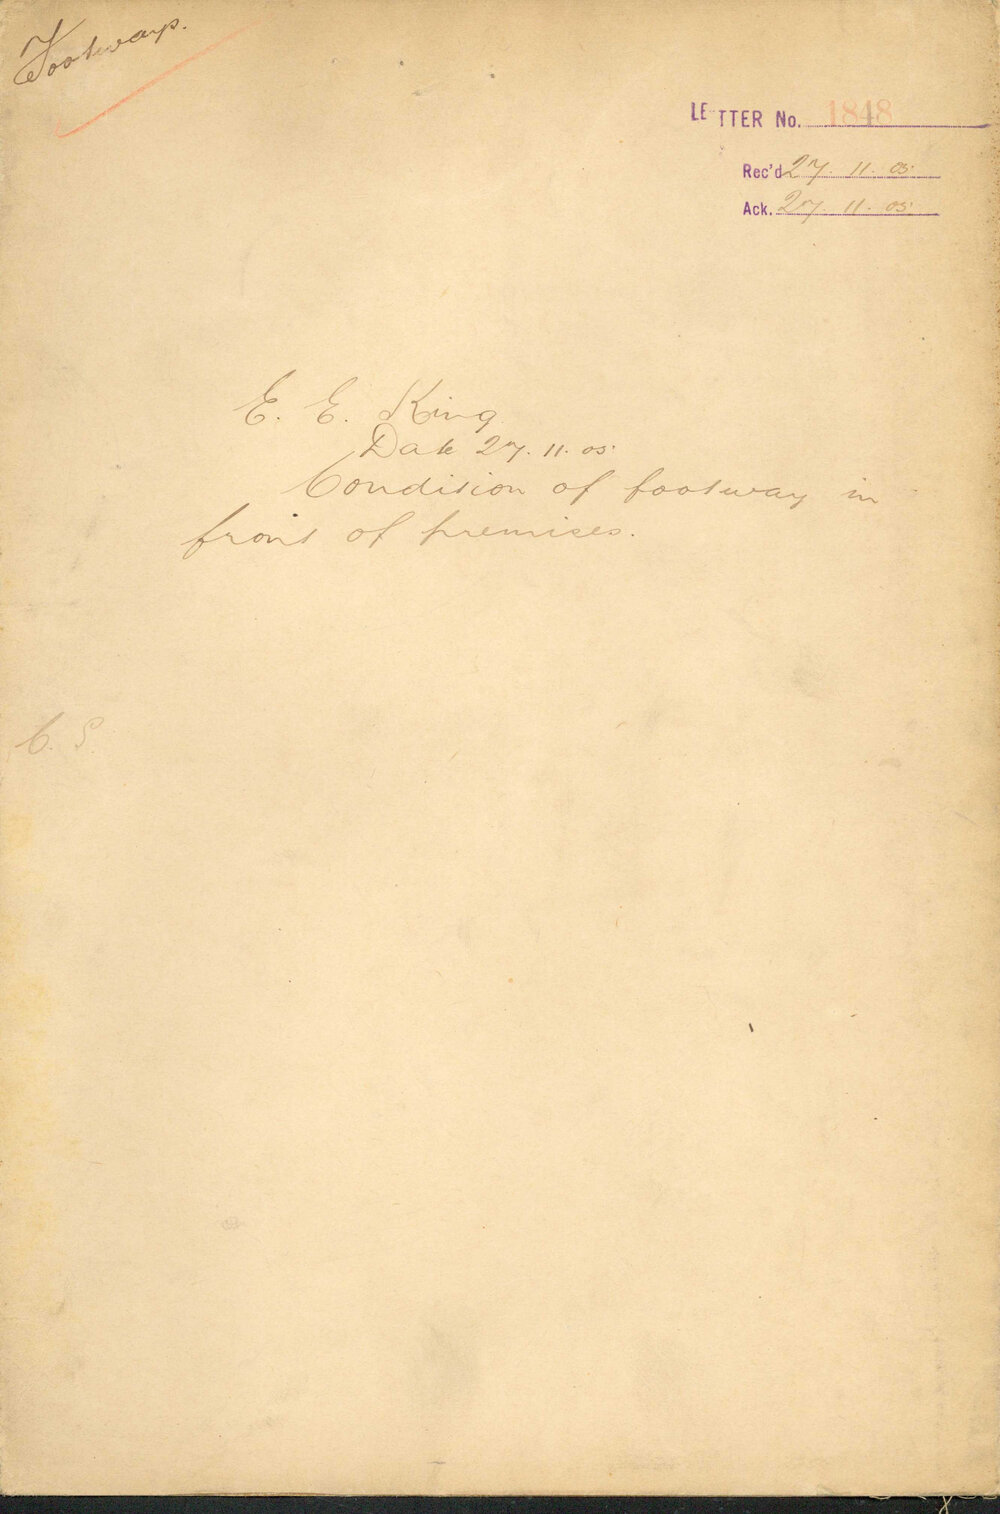 Footways.
LETTER No. 1848
Rec'd 27. 11. 05.
Ack. 27. 11. 05.
E. E. King
Date 27. 11. 05.
Condition of footway in
front of premises.
C. S.